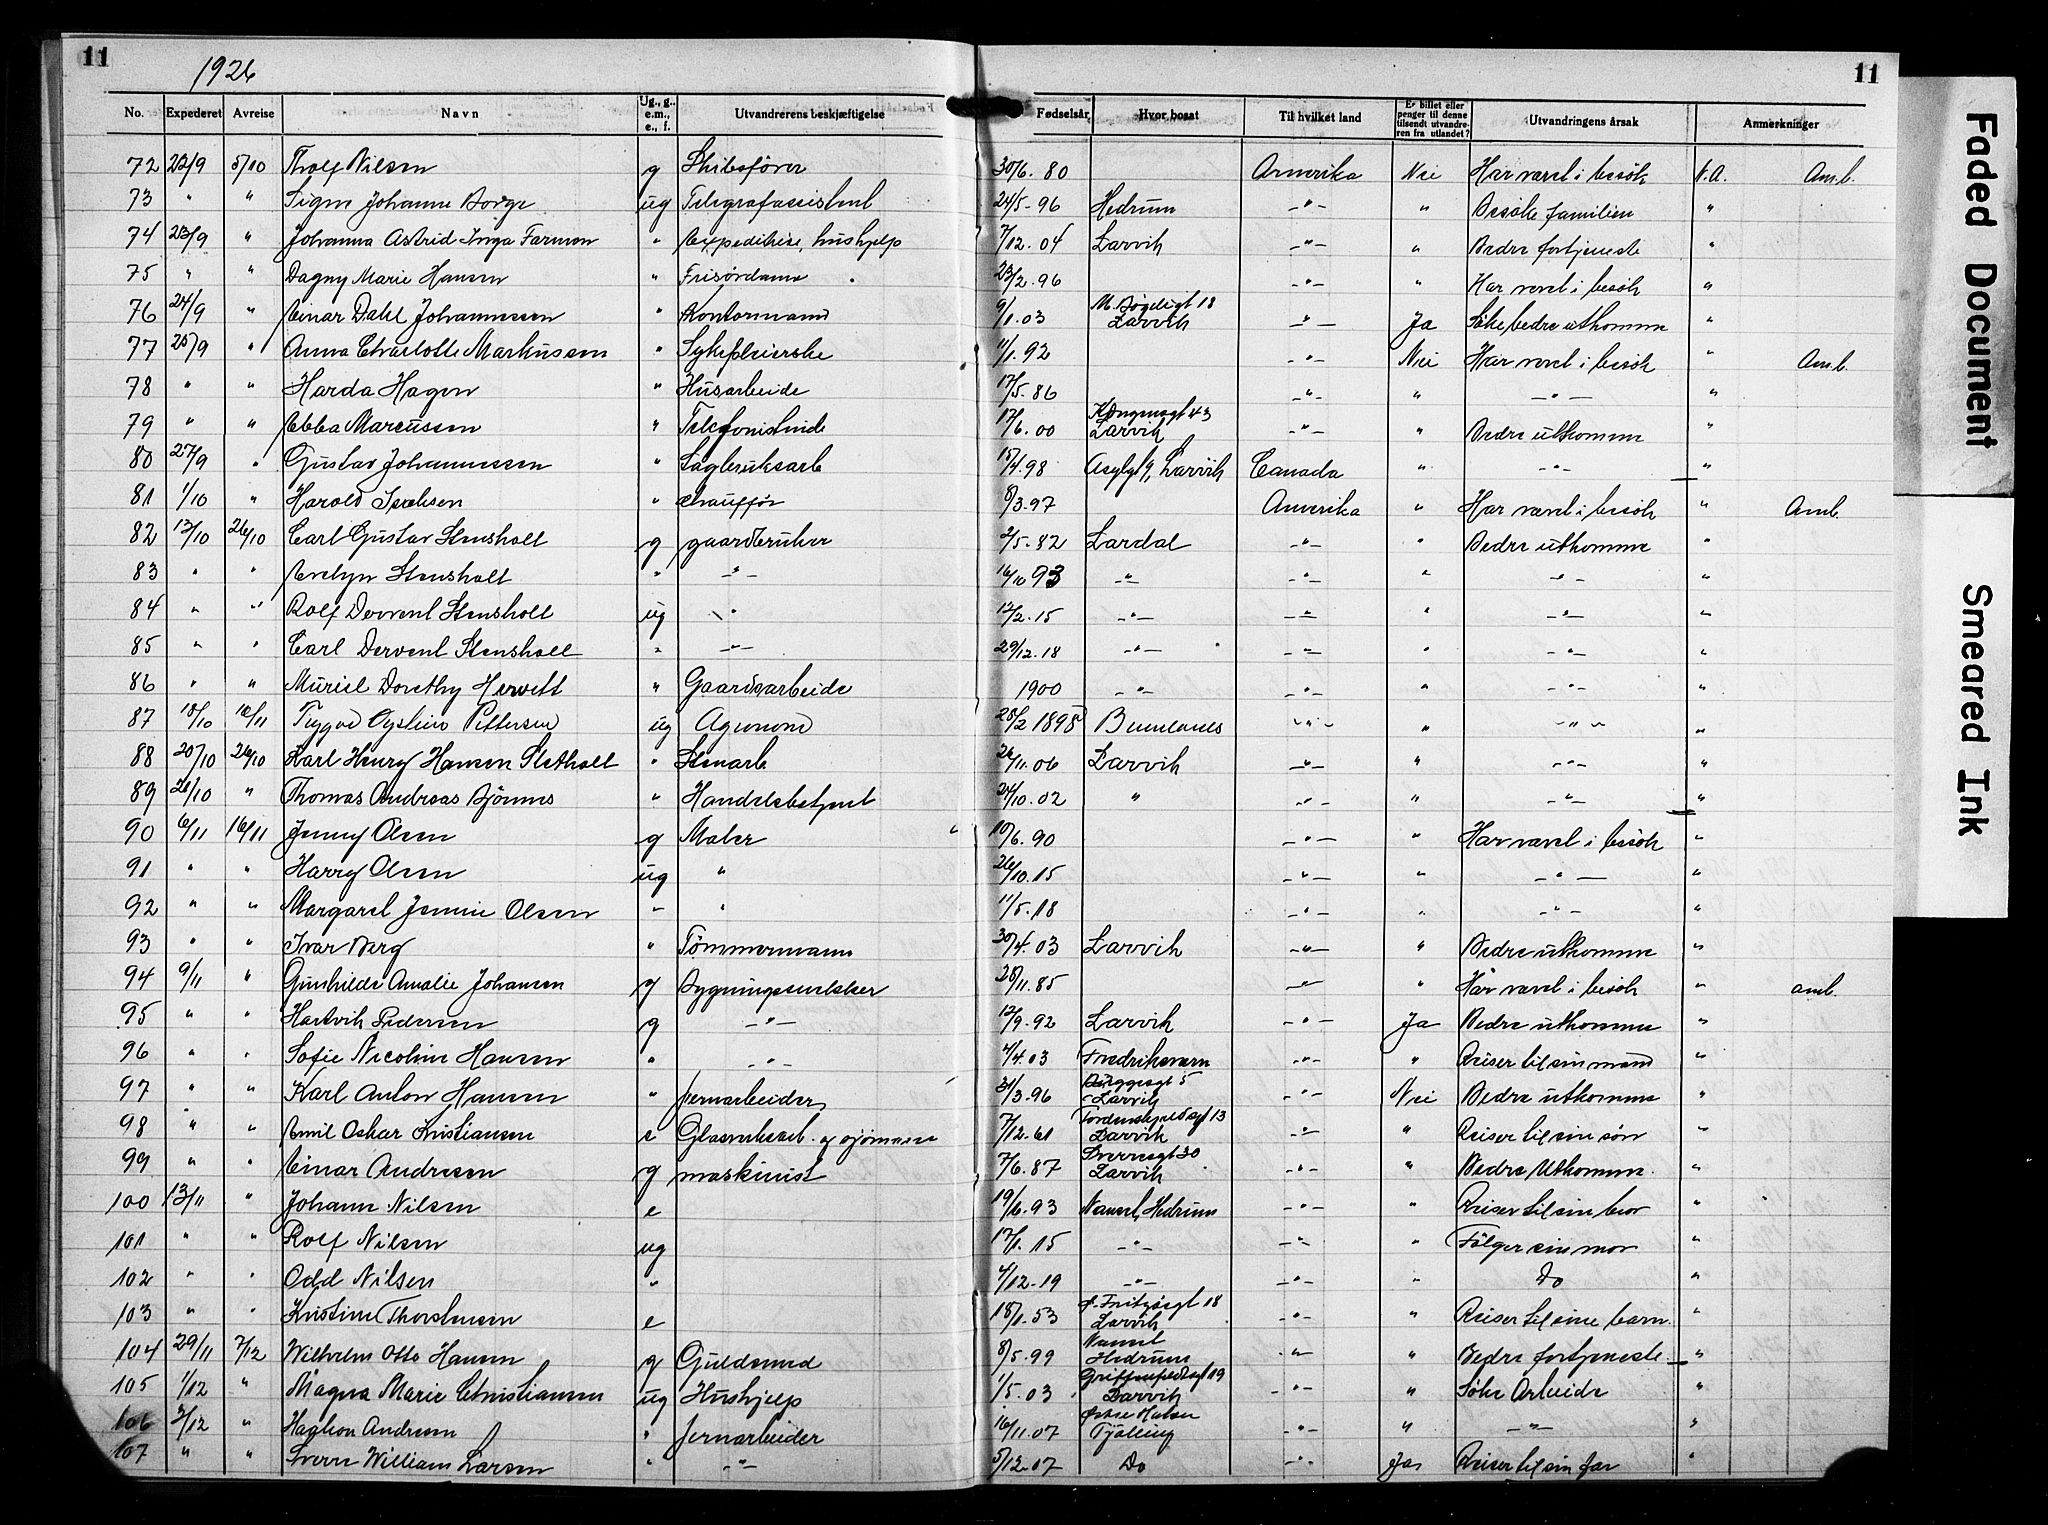 11
1926
11
No. Expederet Avreise Navn Ug., g., e.m., e., f. Utvandrerens beskjæftigelse Fødselsår Hvor bosat Til hvilket land Er billet eller penger til denne tilsendt utvandreren fra utlandet? Utvandringens årsak Anmerkninger
72 22/9 5/10 Tholf Nilsen g Skibsfører 30/6. 80 Amerika Nei Har været i besök N.A. Amb.
73 " " Signe Johanne Borge ug Telegrafassistent 24/5-96 Hedrum -"- " Besöke familien "
74 23/9 " Johanna Astrid Inga Farmen " Expeditrise, hushjelp 7/12. 04 Larvik -"- " Bedre fortjeneste "
75 " " Dagny Marie Hansen " Frisørdame 23/2. 96 -"- " Har været i besök "
76 24/9 " Einar Dahl Johannessen " Kontormand 9/1. 03 M. Bögeligt 18 Larvik -"- Ja Söke bedre utkomme "
77 25/9 " Anna Charlotte Markussen " Sykepleierske 11/1. 92 -"- Nei Har været i besök " Amb.
78 " " Harda Hagen " Husarbeide 17/5. 86 -"- " -"- "
79 " " Ebba Marcussen " Telefonistinde 17/6. 00 Kongensgt 43 Larvik -"- " Bedre utkomme "
80 27/9 " Gustav Johannessen " Sagbruksarb 15/4. 98 Asylgt 9, Larvik Canada " -"- "
81 1/10 " Harold Isaksen " Chauffør 8/3. 97 Amerika " Har været i besök " Amb.
82 12/10 26/10 Carl Gustav Stensholt g gaardbruker 2/5. 82 Lardal -"- " Bedre utkomme "
83 " " Evelyn Stensholt " -"- 16/10 93 -"- -"- " -"- "
84 " " Rolf Dervent Stensholt ug " 12/2. 15 -"- -"- " -"- "
85 " " Carl Dervent Stensholt " -"- 29/12. 18 -"- -"- " -"- "
86 " " Muriel Dorothy Hewett " Gaardsarbeide 1900 -"- -"- " -"- "
87 18/10 10/11 Trygve Øystein Pettersen ug Agronom 28/2 1898 Brunlanes -"- " -"- "
88 20/10 26/10 Karl Henry Hansen Sletholt " Stenarb 26/11. 06 Larvik -"- " -"- "
89 21/10 " Thomas Andreas Bjönnes " Handelsbetjent 24/10. 02 " -"- " -"- "
90 6/11 16/11 Jenny Olsen g Maler " 10/6. 90 -"- " Har været i besök "
91 " " Harry Olsen ug " 26/10. 15 -"- " -"- "
92 " " Margaret Jennie Olsen " " 11/5. 18 -"- " -"- "
93 " " Ivar Berg " Tömmermann 30/4. 03 Larvik -"- " Bedre utkomme "
94 9/11 " Gunhilde Amalie Johansen g Bygningssnekker 28/11. 85 -"- " Har været i besök " amb.
95 " " Hartvik Pedersen g -"- 12/9. 92 Larvik -"- Ja Bedre utkomme "
96 " " Sofie Nicoline Hansen " -"- 4/4. 03 Fredriksværn -"- " Reiser til sin mand "
97 " " Karl Anton Hansen " Jernarbeider 31/3. 96 Bryggegt 5 Larvik -"- Nei Bedre utkomme "
98 " " Emil Oskar Kristiansen e Glasverksarb. og sjömann 7/12. 61 Tordenskjoldsgt 13 Larvik -"- " Reiser til sin sön "
99 " " Einar Andresen g maskinist 7/6. 87 Sverresgt 30 Larvik -"- " Bedre Utkomme. "
100 13/11 " Johanne Nilsen e 19/6. 93 Nanset, Hedrum -"- " Reiser til sin bror "
101 " " Rolf Nilsen ug 17/1. 15 -"- -"- " Fölger sin mor "
102 " " Odd Nilsen " 4/12. 19 -"- -"- " Do "
103 " " Kristine Thorstensen e 18/1. 53 Ø. Fritzøegt 18 Larvik -"- " Reiser til sine barn. "
104 29/11 7/12 Wilhelm Otto Hansen g Guldsmed 8/5. 99 Nanset Hedrum -"- " Bedre fortjeneste. "
105 1/12 " Magna Marie Christiansen ug Hushjelp 1/5. 03 Griffenfeldsgt 19 Larvik -"- " Söke Arbeide "
106 3/12 " Haakon Andresen " Jernarbeider 16/11. 07 Østre Halsen Tjölling -"- " -"- "
107 " " Sverre William Larsen " -"- 5/12. 07 Do -"- Ja Reiser til sin far "
Faded Document
Smeared Ink